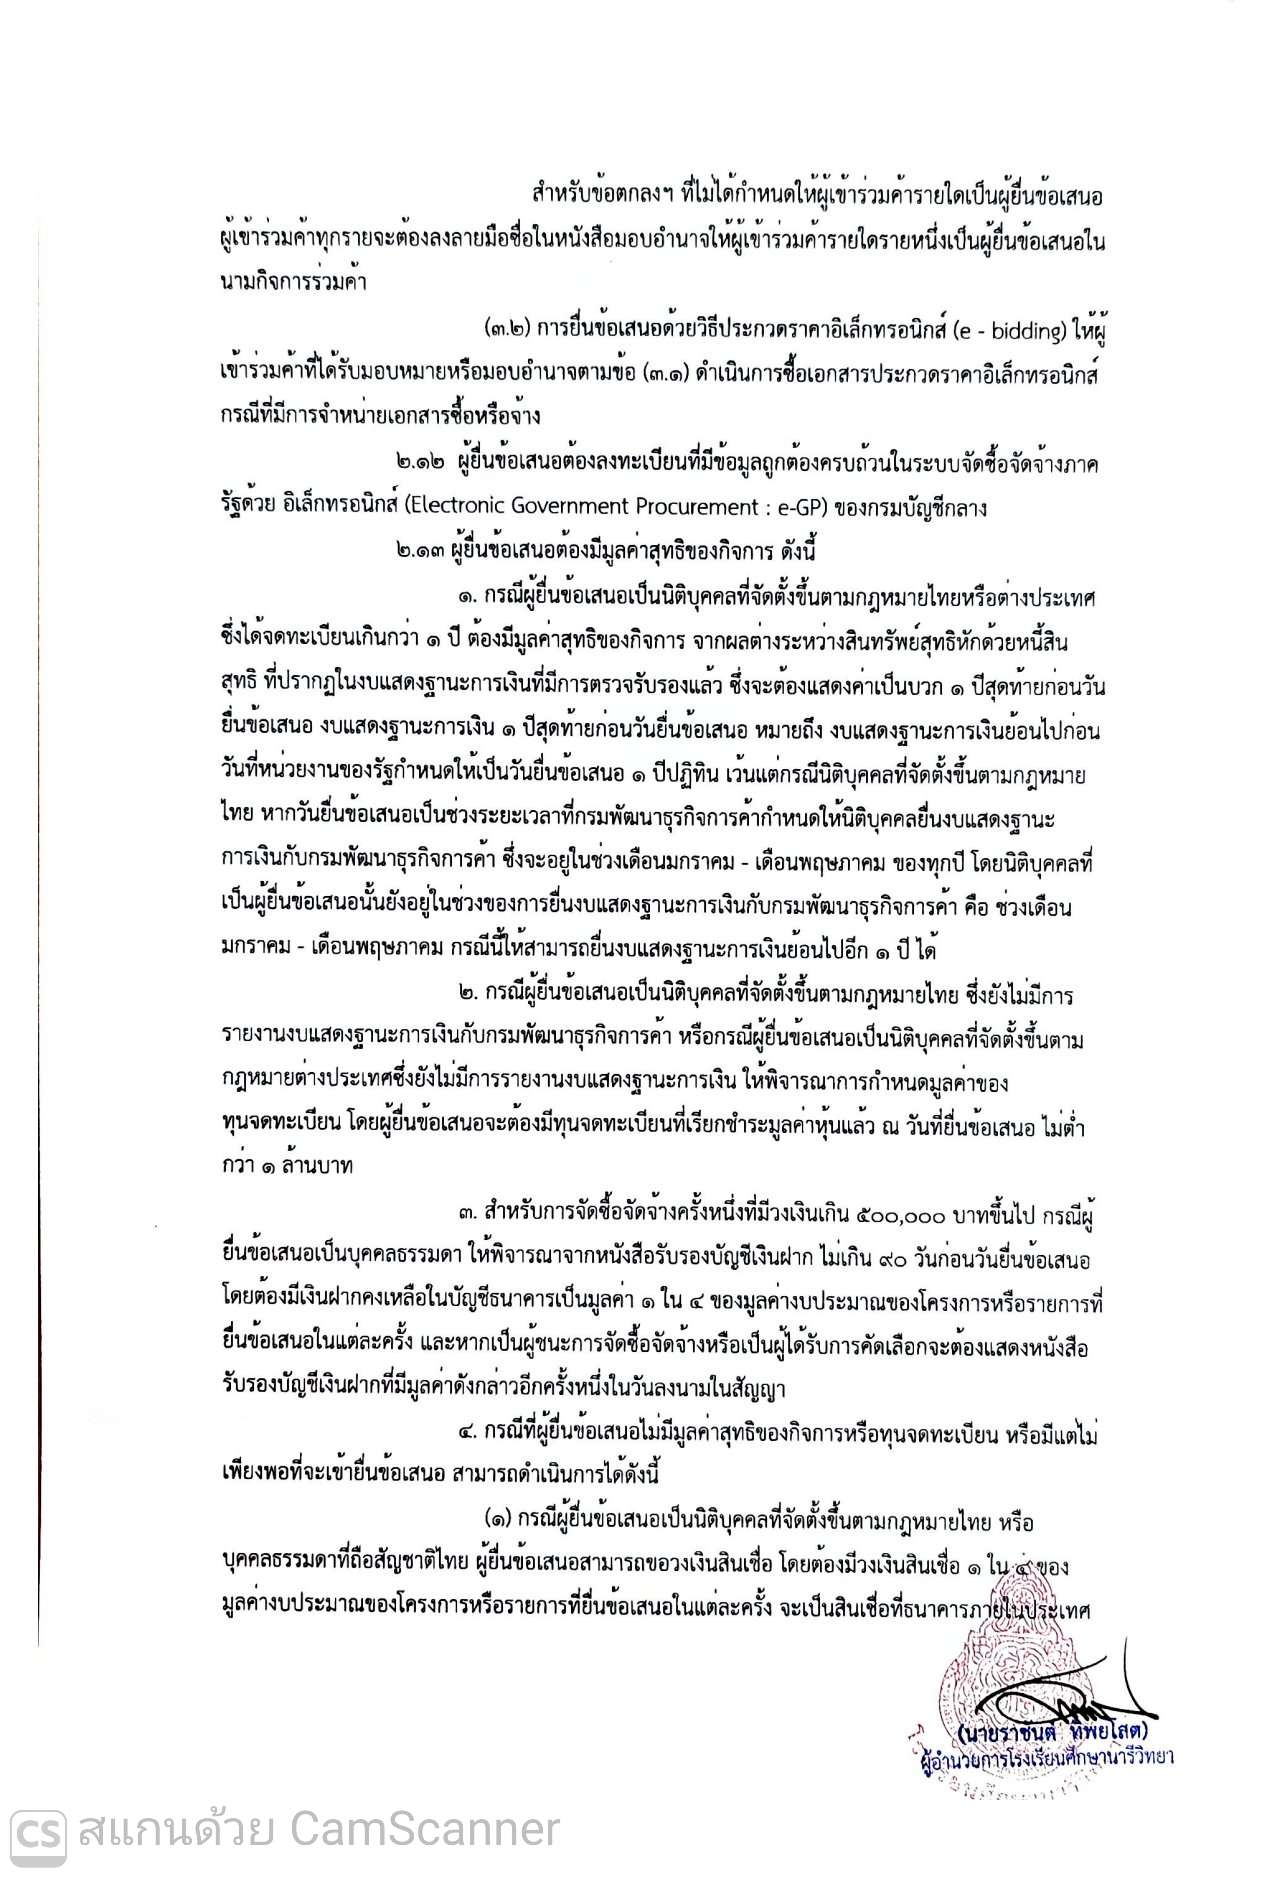 สำหรับข้อตกลงฯ ที่ไม่ได้กำหนดให้ผู้เข้าร่วมค้ารายใดเป็นผู้ยื่นข้อเสนอ
ผู้เข้าร่วมค้าทุกรายจะต้องลงลายมือชื่อในหนังสือมอบอำนาจให้ผู้เข้าร่วมค้ารายใดรายหนึ่งเป็นผู้ยื่นข้อเสนอใน
นามกิจการร่วมค้า
(๓.๒) การยื่นข้อเสนอด้วยวิธีประกวดราคาอิเล็กทรอนิกส์ (e - bidding) ให้ผู้
เข้าร่วมค้าที่ได้รับมอบหมายหรือมอบอำนาจตามข้อ (๓.๑) ดำเนินการซื้อเอกสารประกวดราคาอิเล็กทรอนิกส์
กรณีที่มีการจำหน่ายเอกสารซื้อหรือจ้าง
๒.๑๒ ผู้ยื่นข้อเสนอต้องลงทะเบียนที่มีข้อมูลถูกต้องครบถ้วนในระบบจัดซื้อจัดจ้างภาค
รัฐด้วย อิเล็กทรอนิกส์ (Electronic Government Procurement : e-GP) ของกรมบัญชีกลาง
๒.๑๓ ผู้ยื่นข้อเสนอต้องมีมูลค่าสุทธิของกิจการ ดังนี้
๑. กรณีผู้ยื่นข้อเสนอเป็นนิติบุคคลที่จัดตั้งขึ้นตามกฎหมายไทยหรือต่างประเทศ
ซึ่งได้จดทะเบียนเกินกว่า ๑ ปี ต้องมีมูลค่าสุทธิของกิจการ จากผลต่างระหว่างสินทรัพย์สุทธิหักด้วยหนี้สิน
สุทธิ ที่ปรากฏในงบแสดงฐานะการเงินที่มีการตรวจรับรองแล้ว ซึ่งจะต้องแสดงค่าเป็นบวก ๑ ปีสุดท้ายก่อนวัน
ยื่นข้อเสนอ งบแสดงฐานะการเงิน ๑ ปีสุดท้ายก่อนวันยื่นข้อเสนอ หมายถึง งบแสดงฐานะการเงินย้อนไปก่อน
วันที่หน่วยงานของรัฐกำหนดให้เป็นวันยื่นข้อเสนอ ๑ ปีปฏิทิน เว้นแต่กรณีนิติบุคคลที่จัดตั้งขึ้นตามกฎหมาย
ไทย หากวันยื่นข้อเสนอเป็นช่วงระยะเวลาที่กรมพัฒนาธุรกิจการค้ากำหนดให้นิติบุคคลยื่นงบแสดงฐานะ
การเงินกับกรมพัฒนาธุรกิจการค้า ซึ่งจะอยู่ในช่วงเดือนมกราคม - เดือนพฤษภาคม ของทุกปี โดยนิติบุคคลที่
เป็นผู้ยื่นข้อเสนอนั้นยังอยู่ในช่วงของการยื่นงบแสดงฐานะการเงินกับกรมพัฒนาธุรกิจการค้า คือ ช่วงเดือน
มกราคม - เดือนพฤษภาคม กรณีนี้ให้สามารถยื่นงบแสดงฐานะการเงินย้อนไปอีก ๑ ปี ได้
๒. กรณีผู้ยื่นข้อเสนอเป็นนิติบุคคลที่จัดตั้งขึ้นตามกฎหมายไทย ซึ่งยังไม่มีการ
รายงานงบแสดงฐานะการเงินกับกรมพัฒนาธุรกิจการค้า หรือกรณีผู้ยื่นข้อเสนอเป็นนิติบุคคลที่จัดตั้งขึ้นตาม
กฎหมายต่างประเทศซึ่งยังไม่มีการรายงานงบแสดงฐานะการเงิน ให้พิจารณาการกำหนดมูลค่าของ
ทุนจดทะเบียน โดยผู้ยื่นข้อเสนอจะต้องมีทุนจดทะเบียนที่เรียกชำระมูลค่าหุ้นแล้ว ณ วันที่ยื่นข้อเสนอ ไม่ต่ำ
กว่า ๑ ล้านบาท
๓. สำหรับการจัดซื้อจัดจ้างครั้งหนึ่งที่มีวงเงินเกิน ๕๐๐,๐๐๐ บาทขึ้นไป กรณีผู้
ยื่นข้อเสนอเป็นบุคคลธรรมดา ให้พิจารณาจากหนังสือรับรองบัญชีเงินฝาก ไม่เกิน ๙๐ วันก่อนวันยื่นข้อเสนอ
โดยต้องมีเงินฝากคงเหลือในบัญชีธนาคารเป็นมูลค่า ๑ ใน ๔ ของมูลค่างบประมาณของโครงการหรือรายการที่
ยื่นข้อเสนอในแต่ละครั้ง และหากเป็นผู้ชนะการจัดซื้อจัดจ้างหรือเป็นผู้ได้รับการคัดเลือกจะต้องแสดงหนังสือ
รับรองบัญชีเงินฝากที่มีมูลค่าดังกล่าวอีกครั้งหนึ่งในวันลงนามในสัญญา
๔. กรณีที่ผู้ยื่นข้อเสนอไม่มีมูลค่าสุทธิของกิจการหรือทุนจดทะเบียน หรือมีแต่ไม่
เพียงพอที่จะเข้ายื่นข้อเสนอ สามารถดำเนินการได้ดังนี้
(๑) กรณีผู้ยื่นข้อเสนอเป็นนิติบุคคลที่จัดตั้งขึ้นตามกฎหมายไทย หรือ
บุคคลธรรมดาที่ถือสัญชาติไทย ผู้ยื่นข้อเสนอสามารถขอวงเงินสินเชื่อ โดยต้องมีวงเงินสินเชื่อ ๑ ใน ๔ ของ
มูลค่างบประมาณของโครงการหรือรายการที่ยื่นข้อเสนอในแต่ละครั้ง จะเป็นสินเชื่อที่ธนาคารภายในประเทศ
(นายราชันต์ ทิพยโสต)
ผู้อำนวยการโรงเรียนศึกษานารีวิทยา
CS สแกนด้วย CamScanner